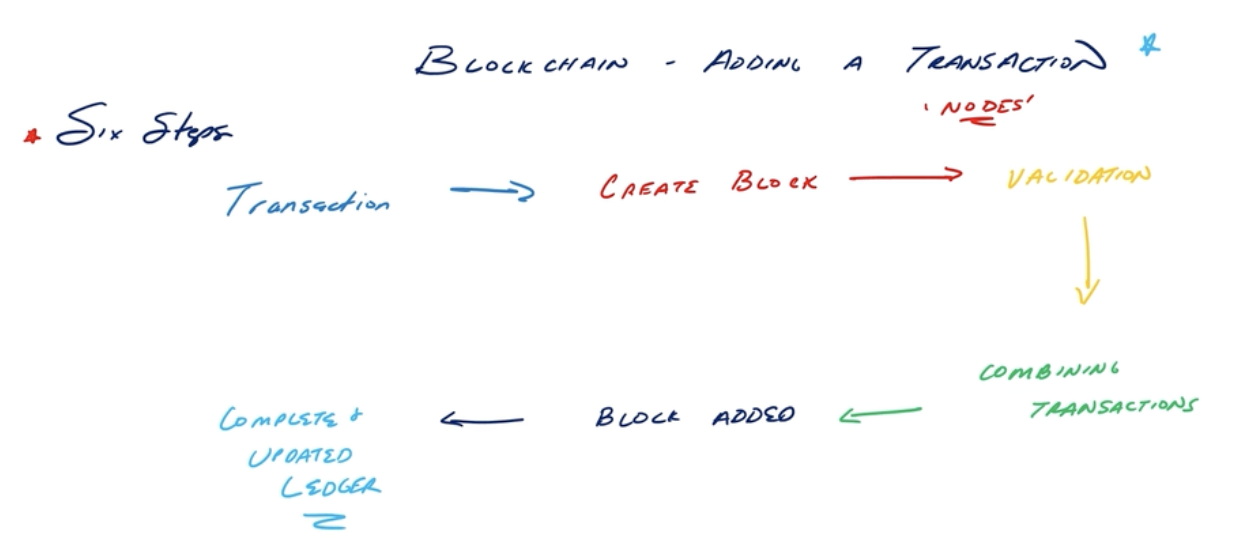 BLOCKCHAIN - ADDING A TRANSACTION
'NODES'
Six Steps
Transaction
CREATE BLOCK
VALIDATION
COMBINING
TRANSACTIONS
BLOCK ADDED
COMPLETE &
UPDATED
LEDGER